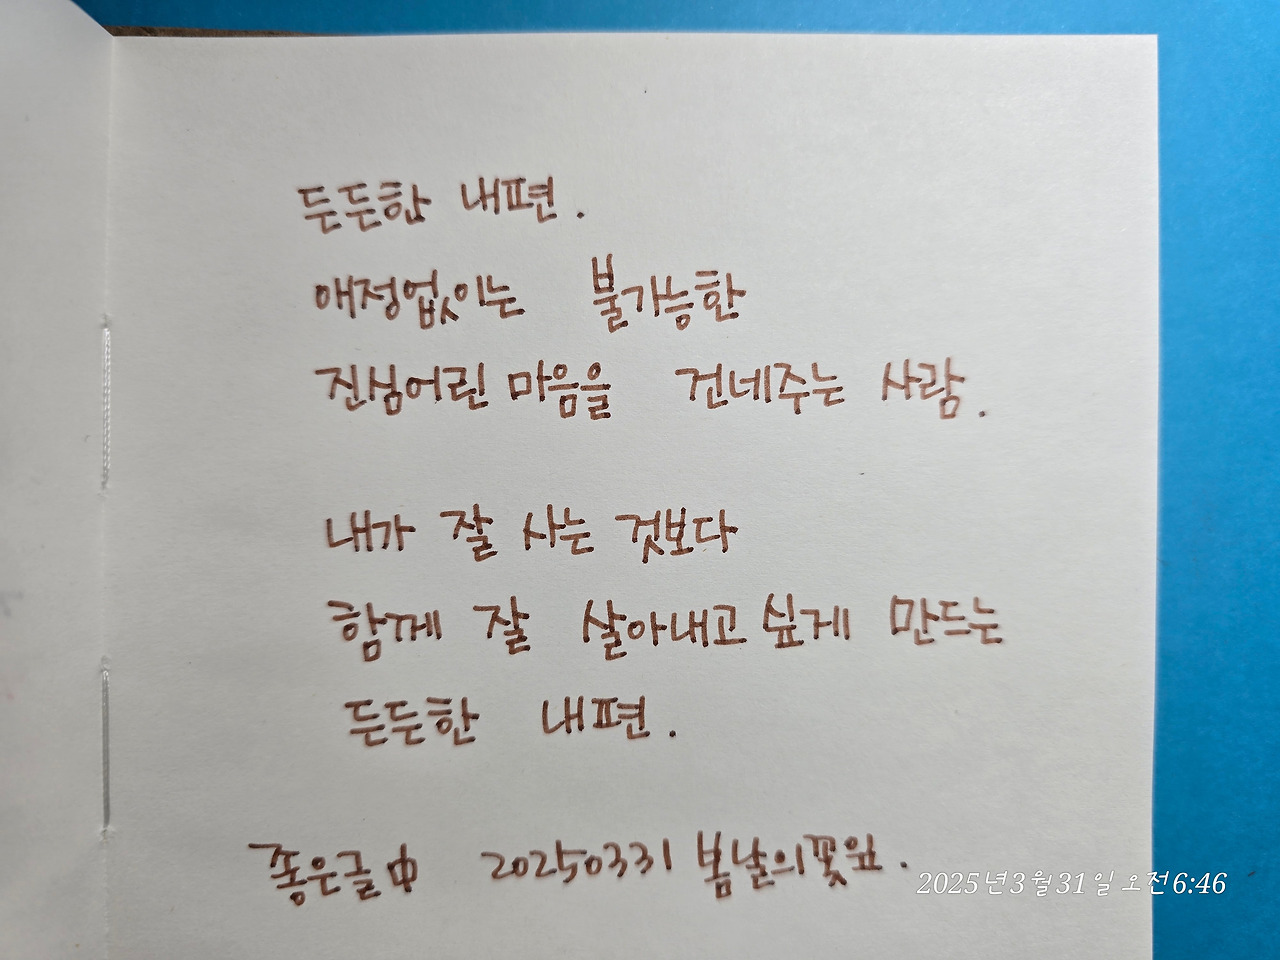 든든한 내편.
애정없이는 불가능한
진심어린 마음을 건네주는 사람.
내가 잘 사는 것보다
함께 잘 살아내고 싶게 만드는
든든한 내편.
좋은글 中 20250331 봄날의꽃요.
2025년 3월 31일 오전 6:46